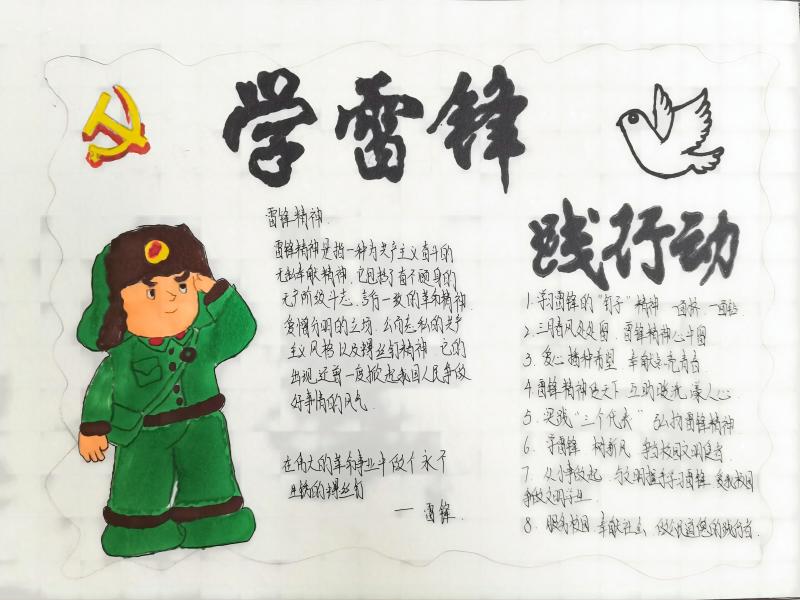 学雷锋
践行动
雷锋精神
雷锋精神是指一种为共产主义奋斗的
无私奉献精神,它包括了奋不顾身的
无产阶级斗志,言行一致的革命精神
爱憎分明的立场,公而忘私的共产
主义风格以及螺丝钉精神,它的
出现还曾一度掀起我国人民争做
好事情的风气
在伟大的革命事业中做个永不
生锈的螺丝钉
— 雷锋
1.学习雷锋的“钉子”精神 一面挤,一面钻
2、三月春风处处图,雷锋精神心中图
3、爱心播种希望 奉献点亮青春
4.雷锋精神天下 互助暖流 人心
5、实践“三个代表” 弘扬雷锋精神
6、学雷锋 树新风 争当校园文明
7、从小事做起 与文明握手学习雷锋
争做文明
8、服务校园 奉献社会 做公民道德的践行者